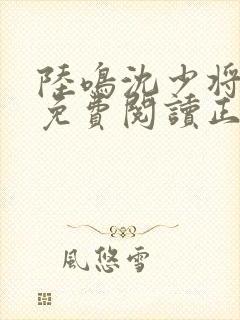 陸鳴沈少將
免費閱讀正
風悠雪